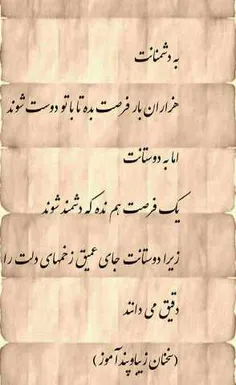 به دشمنانت
هزاران بار فرصت بده تا با تو دوست شوند
اما به دوستانت
یک فرصت هم نده که دشمند شوند
زیرا دوستانت جای عمیق زخمهای دلت را
دقیق می دانند
(سخنان زیبا و پند آموز)